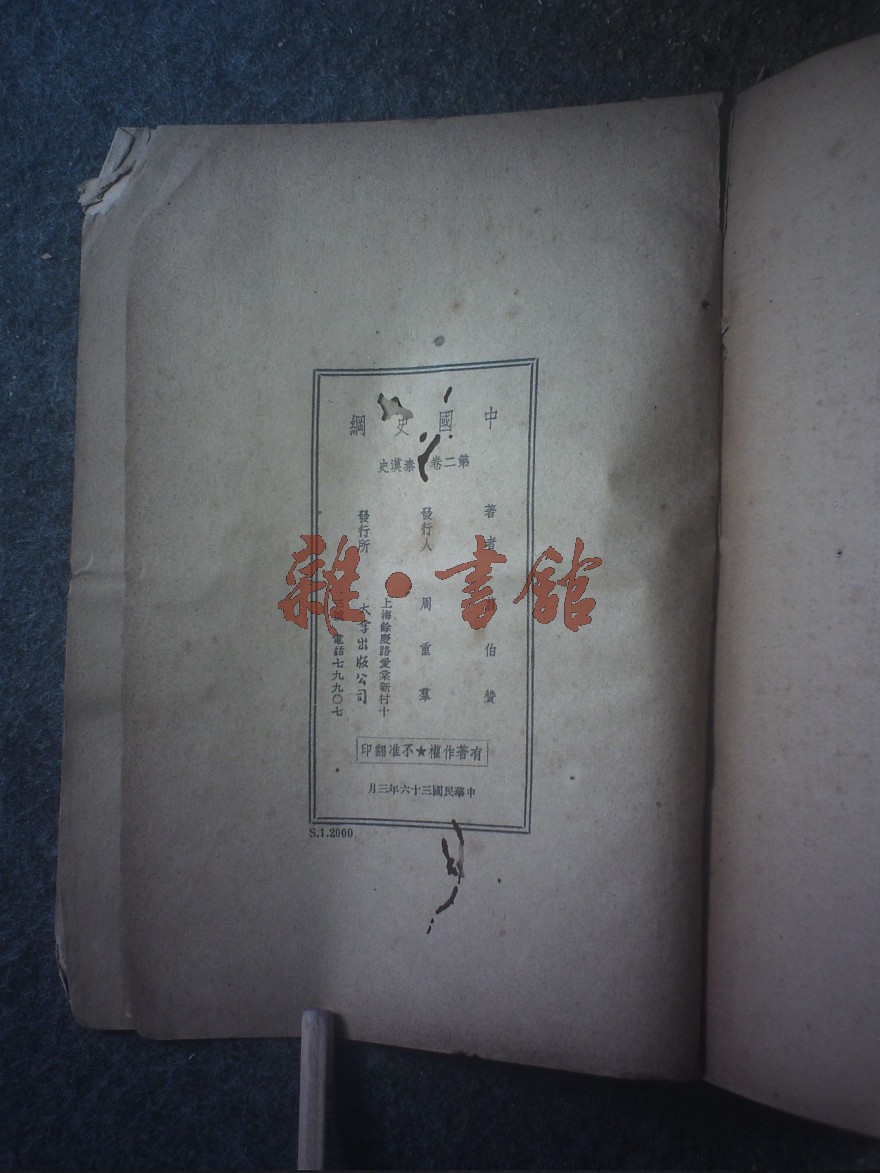 中國史綱
第二卷 秦漢史
著者 伯贊
發行人 周重羣
發行所 大孚出版公司
上海餘慶路愛棠新村十
電話七九九〇七
有著作權★不准翻印
中華民國三十六年三月
S.1.2000
雜·書館